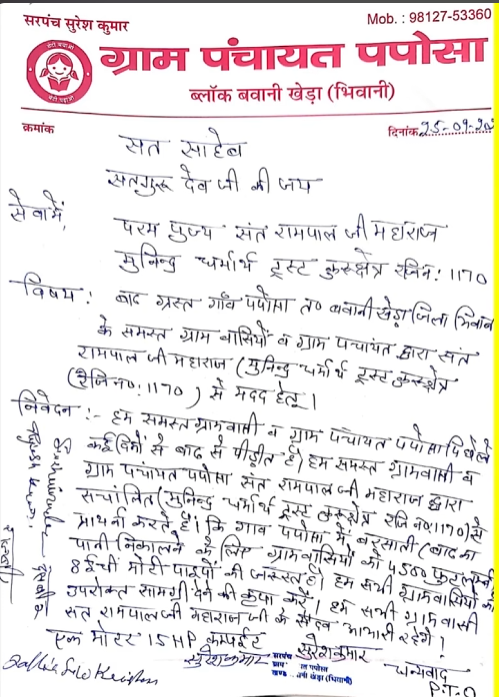 सरपंच सुरेश कुमार
Mob. : 98127-53360
ग्राम पंचायत पपोसा
ब्लॉक बवानी खेड़ा (भिवानी)
क्रमांक
दिनांक 25-09-20
सत साहेब
सतगुरु देव जी की जय
सेवा में,
परम पुज्य संत रामपाल जी महाराज
मुनिन्द्र धर्मार्थ ट्रस्ट कुरुक्षेत्र रजि न० : 1170
विषय : बाढ ग्रस्त गाँव पपोसा त० बवानी खेड़ा जिला भिवानी
के समस्त ग्राम वासियों व ग्राम पंचायत द्वारा संत
रामपाल जी महाराज (मुनिन्द्र धर्मार्थ ट्रस्ट कुरुक्षेत्र
(रजि न० : 1170) से मदद हेतू।
निवेदन :- हम समस्त ग्रामवासी व ग्राम पंचायत पपोसा पिछले
कई दिनों से बाढ से पीड़ीत है। हम समस्त ग्रामवासी व
ग्राम पंचायत पपोसा संत रामपाल जी महाराज द्वारा
सचांलित (मुनिन्द्र धर्मार्थ ट्रस्ट कुरुक्षेत्र रजि न०: 1170) से
प्रार्थना करते हैं। कि गाव पपोसा में बरसाती (बाढ का
पानी निकालने के लिए ग्रामवासियों को 4500 फुट लम्बी
8 ईंची मोटी पाईपों की जरूरत है। हम सभी ग्रामवासियों को
उपरोक्त सामग्री देने की कृपा करें। हम सभी ग्रामवासी
संत रामपाल जी महाराज जी के सदैव आभारी रहेगें।
एक मोटर 15 HP कम्पलीट
सुरेश कुमार
सुरेश कुमार
सरपंच
ग्राम पंचायत पपोसा
खण्ड - बवानी खेड़ा (भिवानी)
धन्यवाद
P.T.O